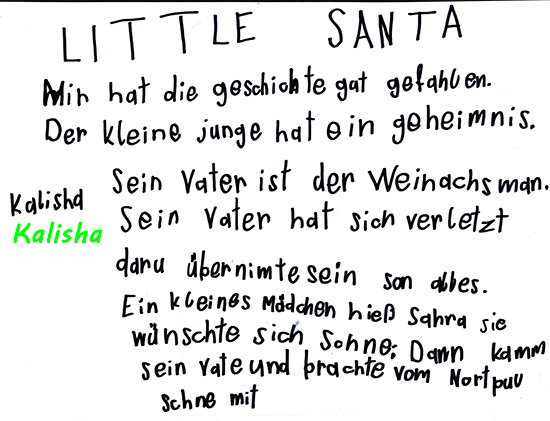 LITTLE SANTA
Mir hat die geschichte gat gefahlen.
Der kleine junge hat ein geheimnis.
Sein Vater ist der Weinachsman.
Kalisha
Kalisha
Sein Vater hat sich verletzt
daru übernimte sein son alles.
Ein kleines Mädchen hieß Sahra sie
wünschte sich Schne. Dann kamm
sein vate und brachte vom Nortpuu
schne mit